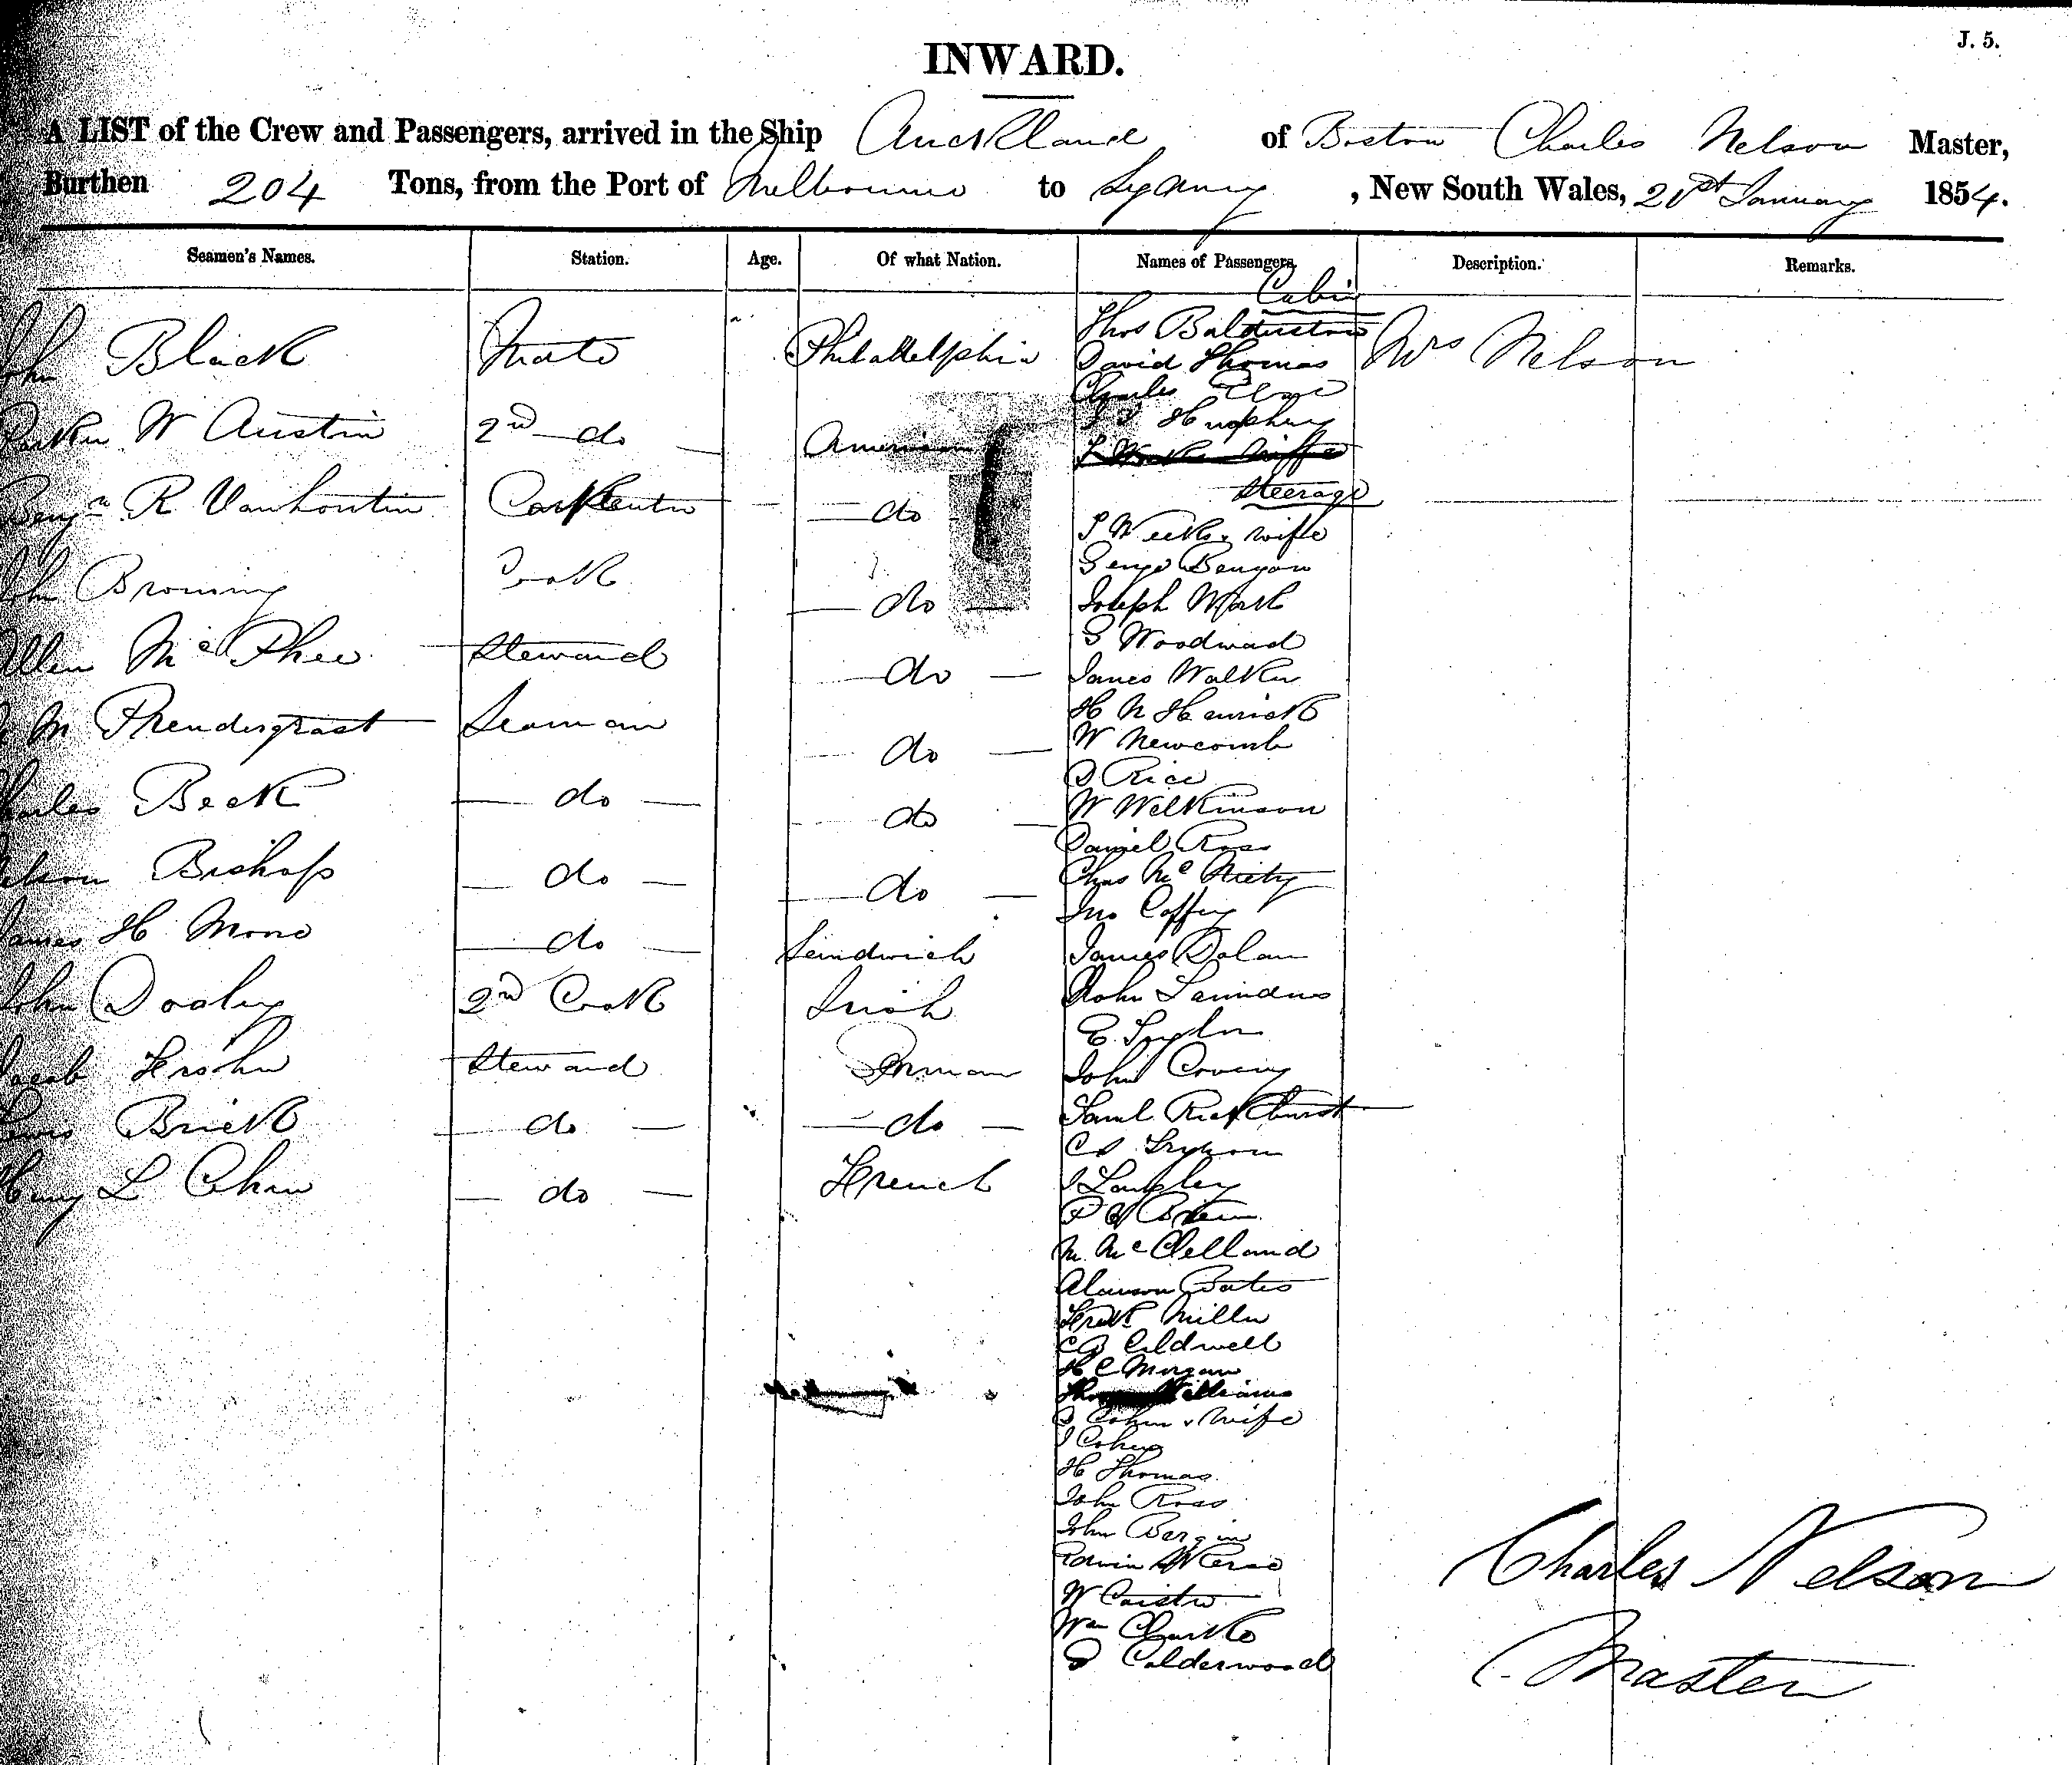 J. 5.
INWARD.
A LIST of the Crew and Passengers, arrived in the Ship Auckland of Boston Charles Nelson Master,
Burthen 204 Tons, from the Port of Melbourne to Sydney, New South Wales, 21st January 1854.
Seamen's Names. Station. Age. Of what Nation. Names of Passengers. Description. Remarks.
Cabin
John Black Mate Philadelphia Thos Balderston Mrs Nelson
David Thomas
Charles
Parker W Austin 2nd do American Humphrey
Steerage
Benjn R Vanhoutin Carpenter do
Weeks & wife
John Browning Cook do Joseph
G Woodward
Allen McPhee Steward do James Walker
H N Henrick
M Phendergrast Seaman do W Newcomb
D Rice
Charles Beck do do W Wilkinson
Daniel Ross
Nelson Bishop do do Chas Mc
Jno Coffey
James H Mono do Sandwich James Dolan
John Dooley 2nd Cook Irish John Saunders
E. Taylor
Jacob Frohn Steward German John
Lewis Brick do do Saml
C S
Henry L Cohn do French J Langley
P O Brien
M McClelland
Alanson Bates
Fredk Miller
C B Coldwell
H C Morgan
Thos Williams
Cohen & Wife
J Cohen
H Thomas
John Ross
John Bergin
Edwin
W Caister
Wm Clarke
D Calderwood
Charles Nelson
Master